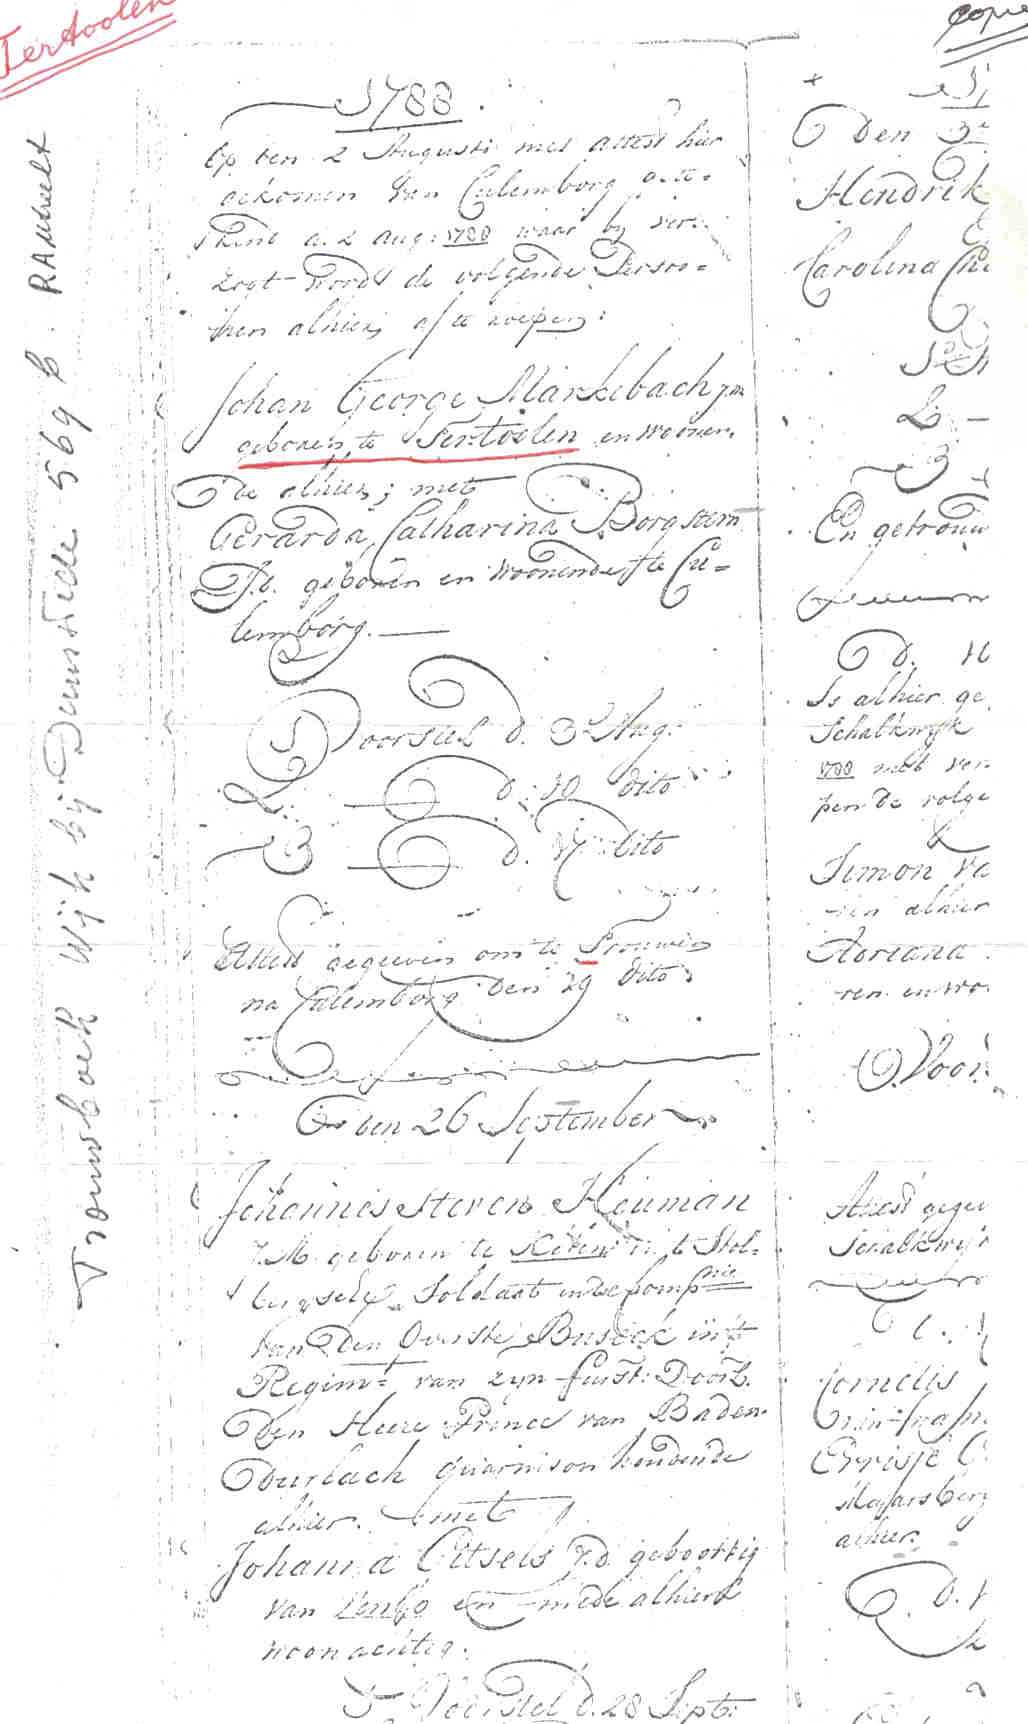 Tertoolen
copie
Trouwboek Wijk bij Duurstede 569 b. RAUtrecht
1788
Op den 2 Augusti met attest hier
gekomen van Culemborg gete=
kent d. 2 aug: 1788 waar bij ver=
zogt word de volgende Persoo=
nen alhier af te roepen:
Johan George Markebach j.m
geboren te Tertoolen en woonen=
de alhier; met
Gerarda Catharina Borgstem
J.d. geboren en woonende te Cu=
lemborg.
1 Voorstel d. 3 Aug:
2. d. 10 dito
3 d. 17 dito
Attest gegeeven om te Trouwen
na Culemborg den 29 dito
den 26 September
Johannes Steven Heuman
J.M. geboren te in 't Stol=
bergsche Soldaat in de Compnie
van den Overste Buseck in 't
Regimt van zijn furst: Doorl.
den Heere Prince van Baden
Durlach guarnison houdende
alhier. met
Johanna Gitsels J.d. geboortig
van Venlo en mede alhier
woonachtig.
1 Voorstel d. 28 Sept:
den 3e
Hendrik
Carolina Chr
1e
2
3
En getrouw
d.
Is alhier ge
Schalkwijk
1788 met ver
pen de volge
Simon va
alhier
Adriana
ren en wo
Voor
Attest gegev
Schalkwijk
Cornelis
Maarsberg
alhier.
d. 1